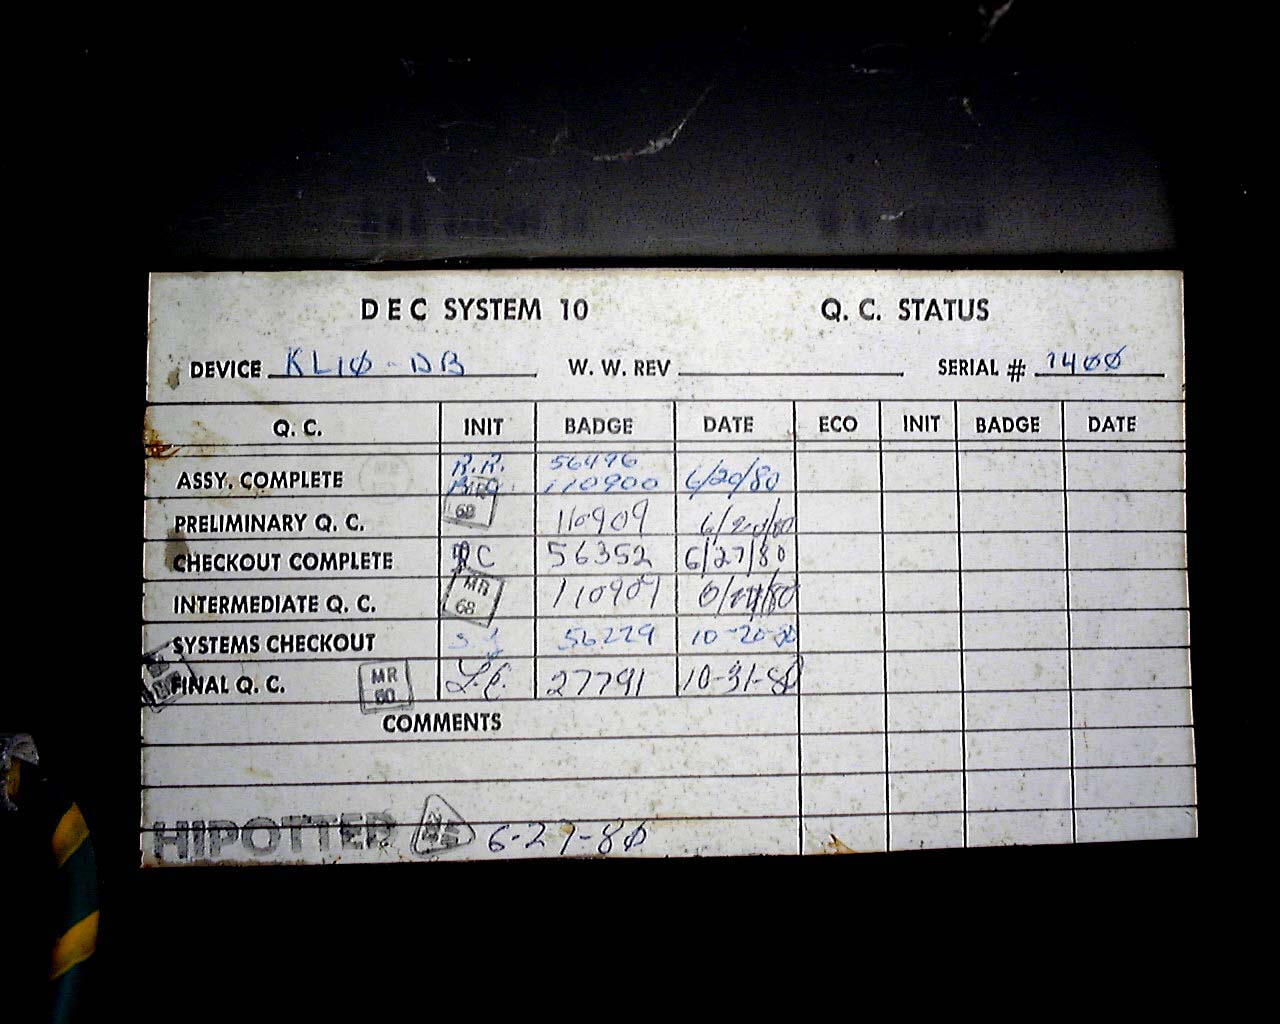 DEC SYSTEM 10 Q. C. STATUS
DEVICE KL10-DB W. W. REV SERIAL # 1400
Q. C. INIT BADGE DATE ECO INIT BADGE DATE
R.R. 56496
ASSY. COMPLETE 110900 6/20/80
PRELIMINARY Q. C. 68 110909 6/20/80
CHECKOUT COMPLETE C 56352 6/27/80
INTERMEDIATE Q. C. MR 68 110909
SYSTEMS CHECKOUT 56229 10-20-80
FINAL Q. C. MR 60 L.C. 27791 10-31-80
COMMENTS
HIPOTTED 6-27-80